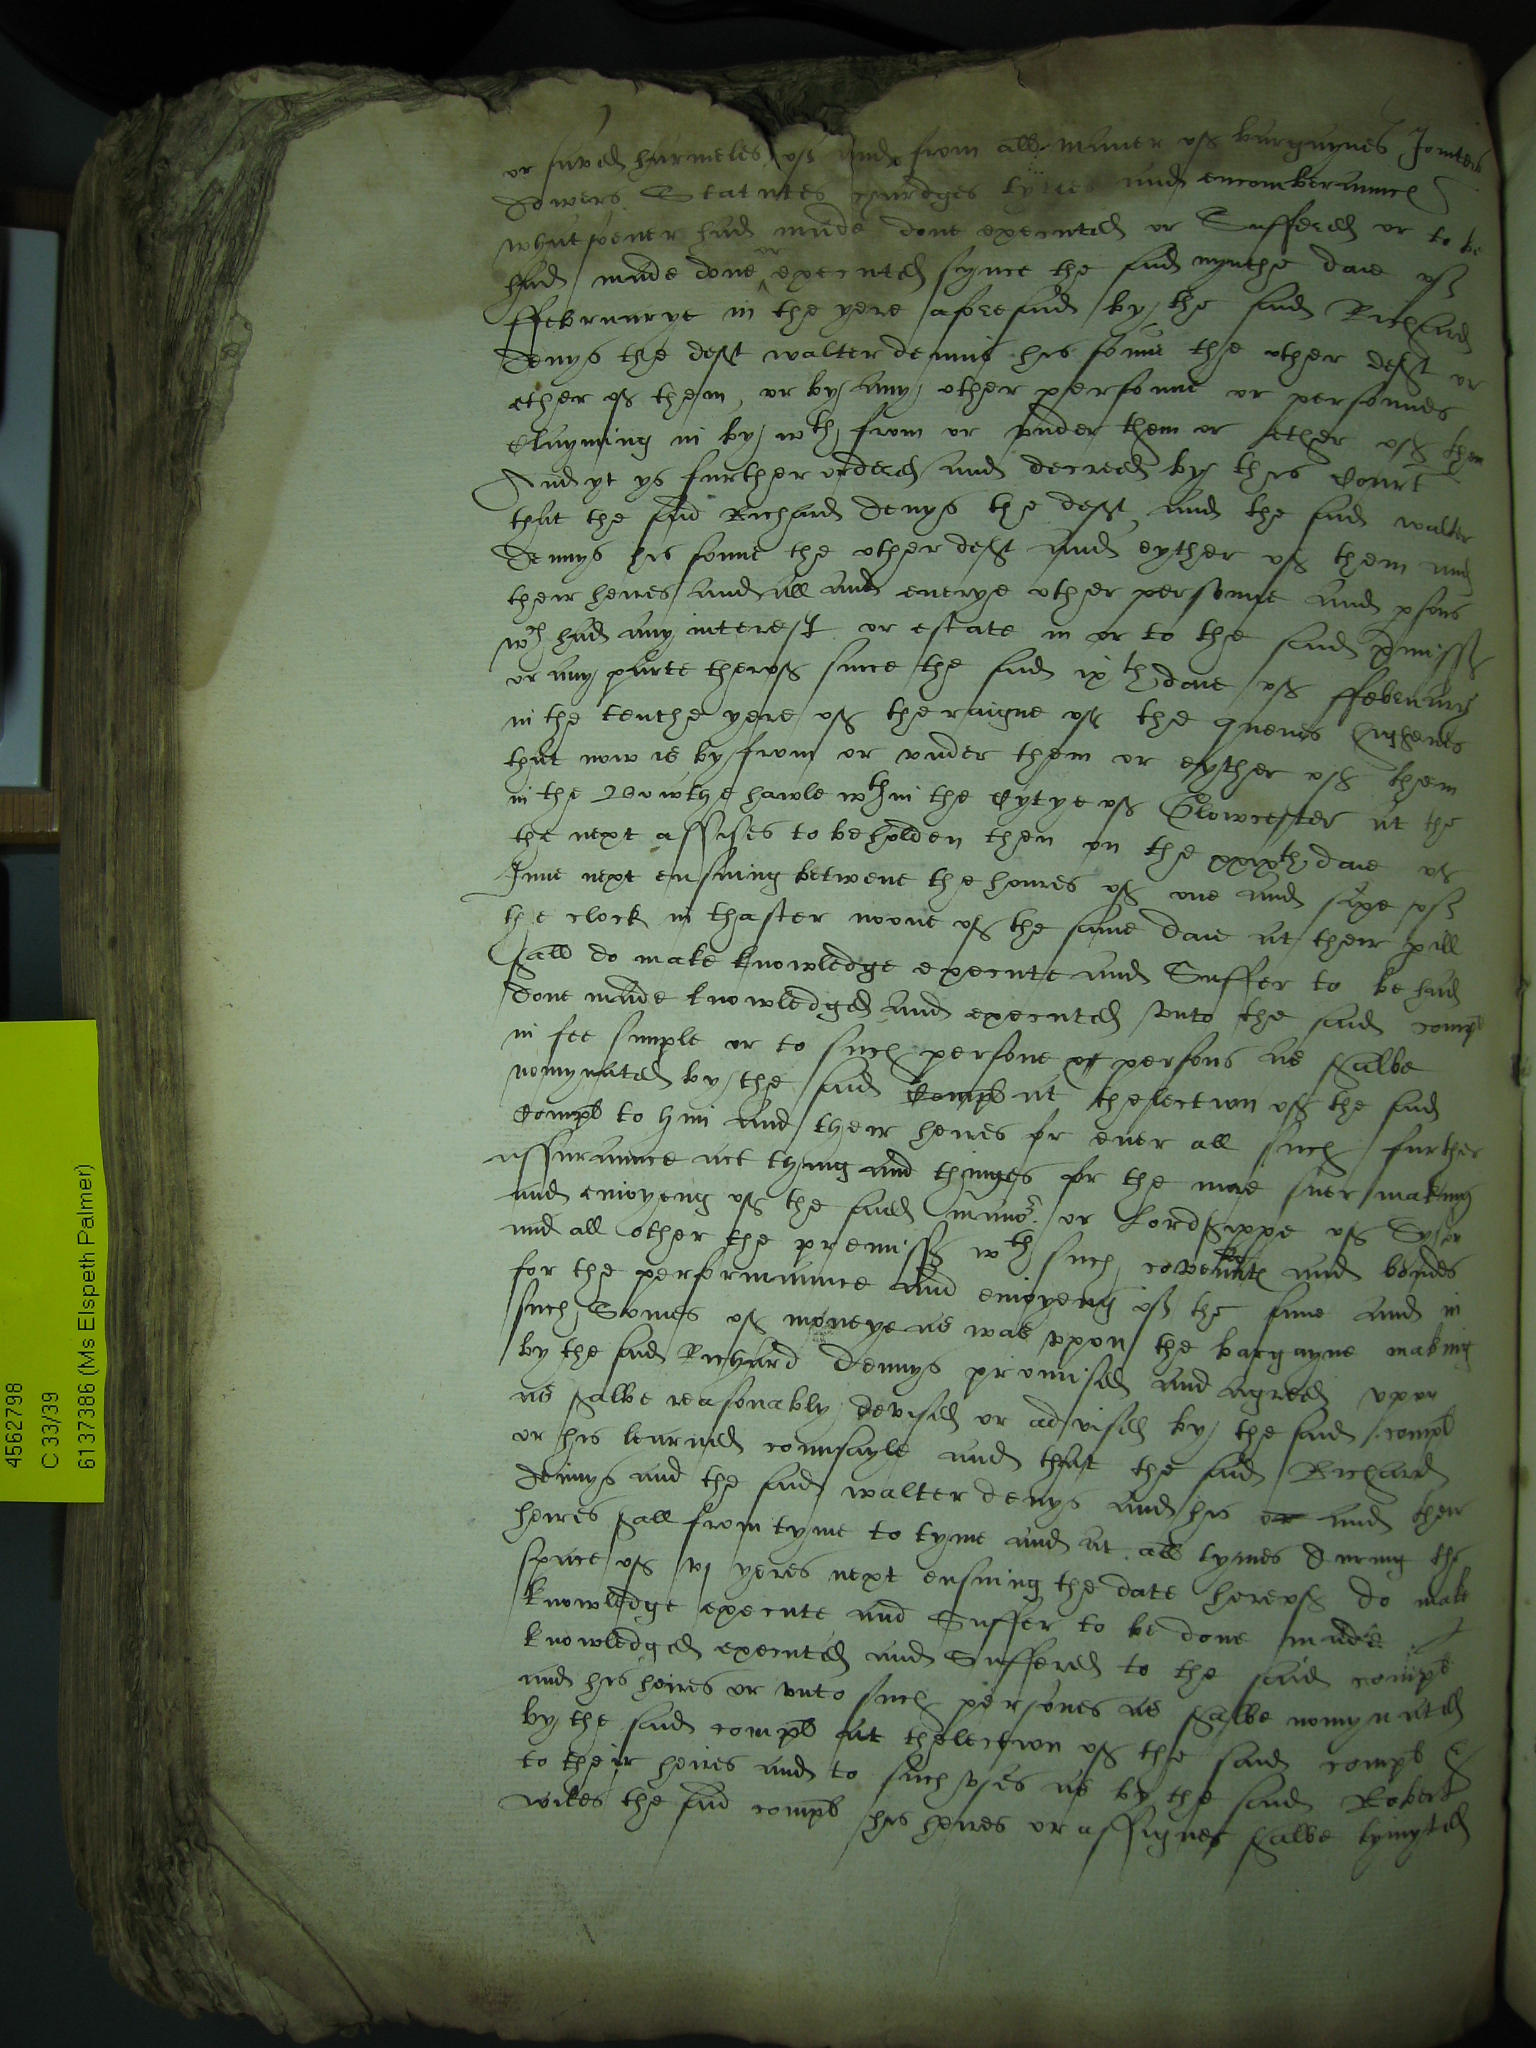 or saved harmeles of and from all maner of bargaynes Jointers
dowers Statutes chardges tytles and encomberaunces
whatsoever had made done executed or Suffered or to be
had made done or executed synce the said nynthe daie of
ffebruarye in the yere aforesaid by the said Richard
Denys the deft walter dennis his sonne the other deft or
ether of them, or by any other personne or personnes
Clayming in by wth from or vnder them or ether of them
And yt ys further ordered and decreed by this Court
that the said Richard Denys the deft and the said walter
Dennys his sonne the other deft and eyther of them and
their heires and all and euerye other personne and psons
wch had any interest or estate in or to the said pmiss
or any parte therof since the said ixth daie of ffebruary
in the tenthe yere of the raigne of the quenes highenes
that now is by from or vnder them or eyther of them
in the Bowthe hawle wthin the Cytye of Glowcester at the
the next assises to be holden then on the xxixth daie of
June next ensuing betwene the howres of one and sixe of
the clock in thafter noone of the same daie at their pill
shall do make knowledge execute and Suffer to be had
done made knowledged and executed vnto the said compl
in fee simple or to such persone or persons as shalbe
nomynated by the said Compl at thelection of the said
Compl to him and their heires for ever all such further
assuraunce act thing and thinges for the more suer making
and enioyeng of the said manor or Lordshippe of Syston
and all other the premiss wth such covenntes and bondes
for the performaunce and enioyeng of the same and in
such Somes of moneye as was vpon the bargayne making
by the said Richard Dennys promised and agreed vpon
as shalbe reasonably devised or advised by the said compl
or his learned counsayle and that the said Richard
Dennys and the said walter denys and his or and their
heires shall from tyme to tyme and at all tymes during the
space of vi yeres next ensuing the date hereof do make
knowledge execute and Suffer to be done made
knowledged executed and Suffered to the said compl
and his heires or vnto such persones as shalbe nomynated
by the said compl at thelection of the said compl &
to their heires and to such vses as by the said Robert
wikes the said compl his heires or assignes shalbe lymyted
4562798
C 33/39
6137386 (Ms Elspeth Palmer)